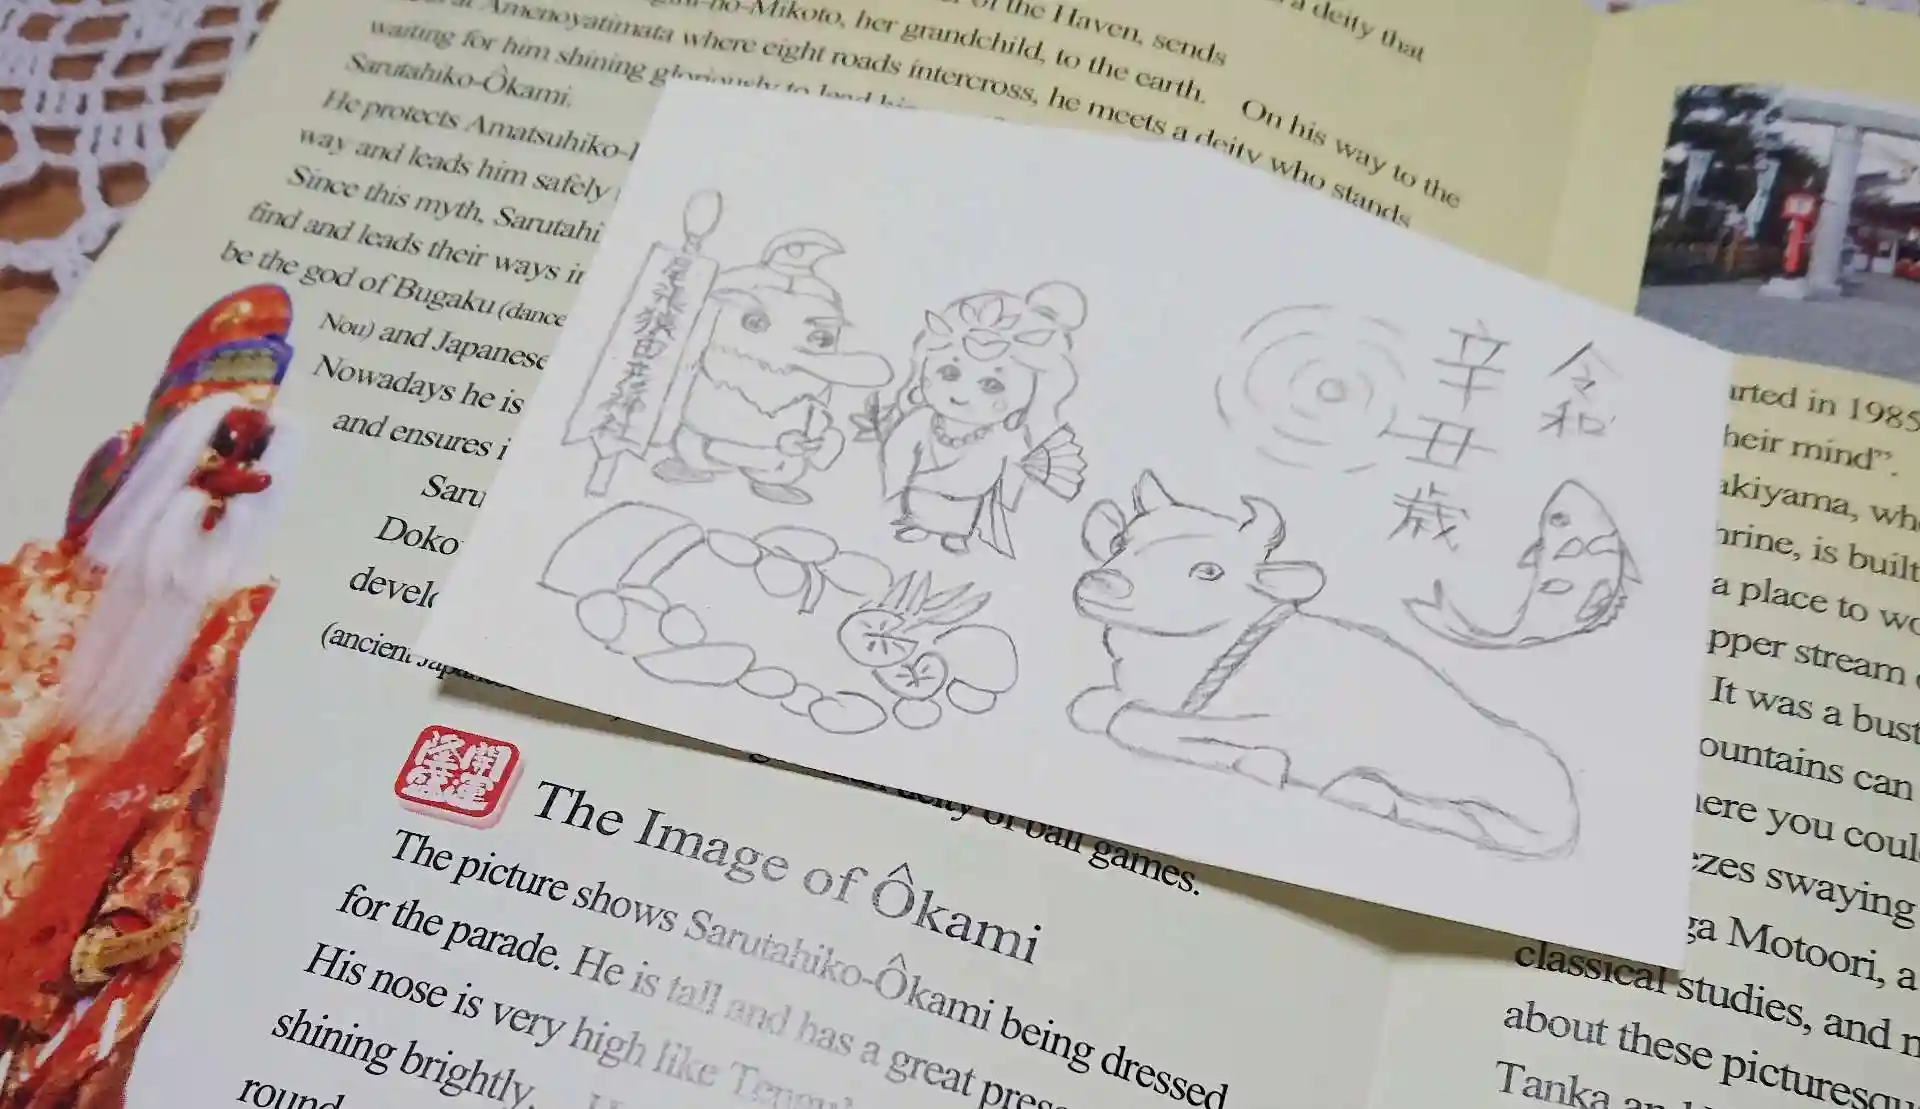 a deity that
of the Haven, sends
-no-Mikoto, her grandchild, to the earth. On his way to the
at Amenoyatimata where eight roads intercross, he meets a deity who stands
waiting for him shining gloriously to lead
Sarutahiko-Ôkami.
He protects Amatsuhiko-
way and leads him safely
Since this myth, Sarutahi
find and leads their ways in
be the god of Bugaku (dance
Nou) and Japanese
Nowadays he is
and ensures i
Saru
Doko
develo
(ancient
deity of ball games.
令和
辛丑歳
開運
隆盛
The Image of Ôkami
The picture shows Sarutahiko-Ôkami being dressed
for the parade. He is tall and has a great pres
His nose is very high like Tengu
shining brightly.
round
arted in 1985
heir mind”.
akiyama, wh
hrine, is built
a place to wo
pper stream
It was a bust
ountains can
here you coul
ezes swaying
ga Motoori, a
classical studies, and
about these picturesqu
Tanka